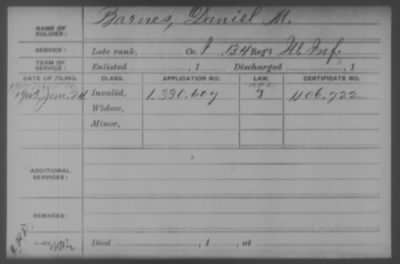 NAME OF SOLDIER: Barnes, Daniel M.
SERVICE: Late rank, Co. I, 134 Reg't Ill Inf.
TERM OF SERVICE: Enlisted , 1 Discharged , 1
DATE OF FILING. CLASS. APPLICATION NO. LAW. CERTIFICATE NO.
Invalid, 1,330.607 406.722
Widow,
Minor,
ADDITIONAL SERVICES:
REMARKS:
Died , 1 , at